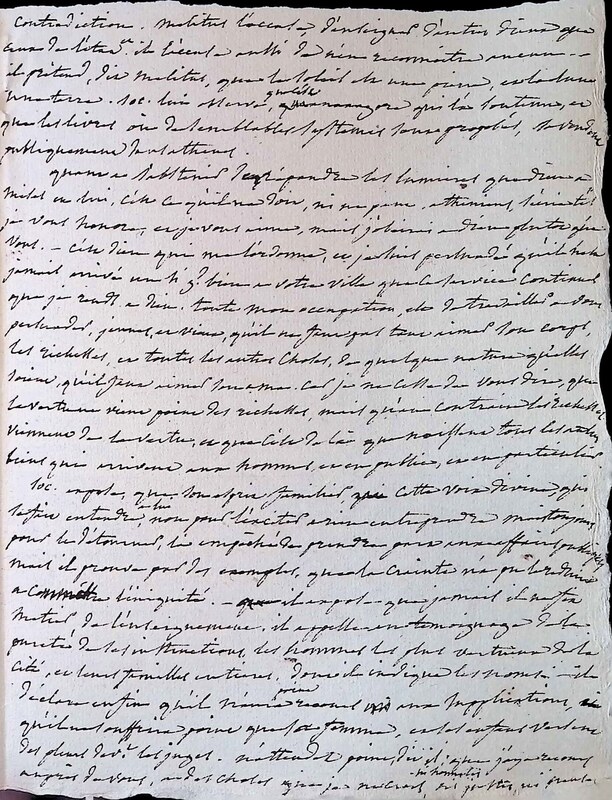 contradiction. Melitus l'accuse, d'enseigner d'autres dieux que
ceux de l'état. il l'accuse aussi de n'en reconnoitre aucun —
il prétend, dit Melitus, que le soleil est une pierre, et la lune
une terre. Soc. lui observe, qu'anaxagore qui l'a soutenu, et
que les livres où de semblables systemes sont proposés, se vendent
publiquement dans athenes.
quant a s'abstenir de répandre les lumieres que dieu a
mises en lui, c'est ce qu'il ne doit, ni ne peut. atheniens,
je vous honore, et je vous aime, mais j'obeirai a dieu plutot que
vous. — c'est dieu qui me l'ordonne, et je suis persuadé qu'il n'est
jamais arrivé un si gd bien a votre ville que ce service continuel
que je rends a dieu. toute mon occupation, est de travailler a vous
persuader, jeunes, et vieux, qu'il ne faut pas tant aimer son corps,
les richesses, et toutes les autres choses, de quelque nature qu'elles
soient, qu'il faut aimer son ame. car je ne cesse de vous dire, que
la vertu ne vient point des richesses, mais qu'au contraire les richesses
viennent de la vertu, et que c'est de là que naissent tous les autres
biens qui arrivent aux hommes, et en public, et en particulier.
Soc. expose, que son esprit familier, cette voix divine, qui
se fait entendre a lui, non pour l'exciter a rien entreprendre mais toujours
pour le détourner, l'a empêché de prendre part aux affaires publiques
mais il prouve par des exemples, que la crainte n'a pu le réduire
a commettre l'iniquité. — il expose que jamais il n'a fait
metier de l'enseignement. il appelle en temoignage de la
pureté de ses instructions, les hommes les plus vertueux de la
cité, et leurs familles entieres. dont il indique les noms. — il
déclare enfin qu'il n'aura point recours aux supplications,
qu'il ne souffrira point que sa femme, et ses enfans versent
des pleurs devt. les juges. n'attendez point, dit il, que j'aye recours
auprès de vous, a des choses que je ne crois, ni honnêtes, ni justes, ni pieuses